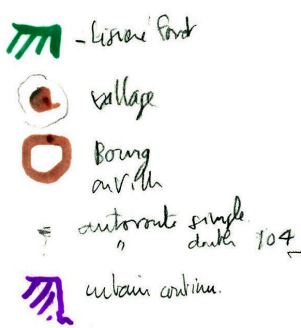 - Lisière foret
village
Bourg
autoroute simple
" double 104
urbain continu.